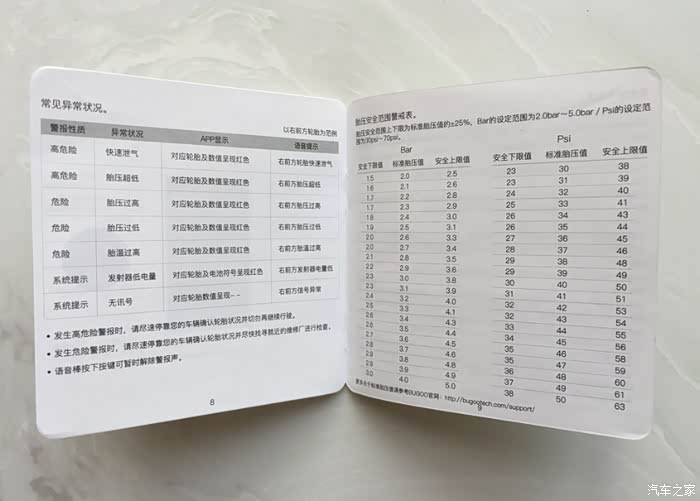 常见异常状况。
以右前方轮胎为范例
警报性质 异常状况 APP显示 语音提示
高危险 快速泄气 对应轮胎及数值呈现红色 右前方轮胎快速泄气
高危险 胎压超低 对应轮胎及数值呈现红色 右前方胎压超低
危险 胎压过高 对应轮胎及数值呈现红色 右前方胎压过高
危险 胎压过低 对应轮胎及数值呈现红色 右前方胎压过低
危险 胎温过高 对应轮胎及数值呈现红色 右前方胎温过高
系统提示 发射器低电量 对应轮胎及电池符号呈现红色 右前方发射器低电量
系统提示 无讯号 对应轮胎数值呈现-- 右前方信号异常
• 发生高危险警报时，请尽速停靠您的车辆确认轮胎状况并切勿再继续行驶。
• 发生危险警报时，请尽速停靠您的车辆确认轮胎状况并尽快找寻就近的维修厂进行检查。
• 语音棒按下按键可暂时解除警报声。
8
胎压安全范围警戒表。
胎压安全范围上下限为标准胎压值的±25%，Bar的设定范围为2.0bar～5.0bar / Psi的设定范
围为30psi～70psi。
Bar
安全下限值 标准胎压值 安全上限值
1.5 2.0 2.5
1.6 2.1 2.6
1.7 2.2 2.8
1.7 2.3 2.9
1.8 2.4 3.0
1.9 2.5 3.1
2.0 2.6 3.3
2.0 2.7 3.4
2.1 2.8 3.5
2.2 2.9 3.6
2.3 3.0 3.8
2.3 3.1 3.9
2.4 3.2 4.0
2.5 3.3 4.1
2.6 3.4 4.3
2.6 3.5 4.4
2.7 3.6 4.5
2.8 3.7 4.6
2.9 3.8 4.8
2.9 3.9 4.9
3.0 4.0 5.0
Psi
安全下限值 标准胎压值 安全上限值
23 30 38
23 31 39
24 32 40
25 33 41
26 34 43
26 35 44
27 36 45
28 37 46
29 38 48
29 39 49
30 40 50
31 41 51
32 42 53
32 43 54
33 44 55
34 45 56
35 46 58
35 47 59
36 48 60
37 49 61
38 50 63
更多关于标准胎压值请参考BUGOO官网：http://bugootech.com/support/
9
汽车之家